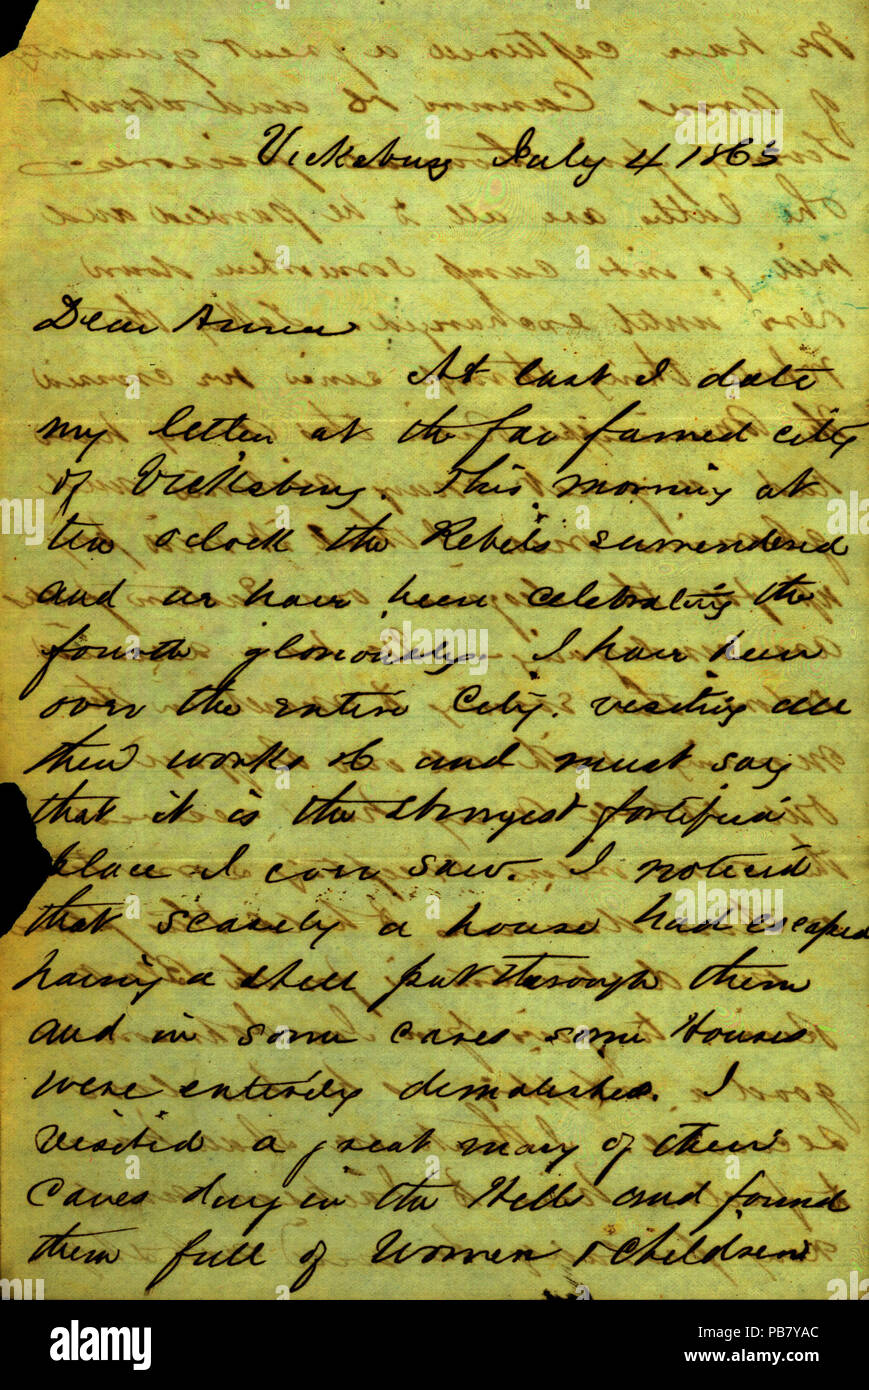 Vicksburg July 4 1863
Dear Anna
At last I date
my letter at the far famed city
of Vicksburg. This morning at
ten oclock the Rebels surrendered
and we have been celebrating the
fourth gloriously I have been
over the entire City. visiting all
their works &c and must say
that it is the strongest fortified
place I ever saw. I noticed
that scarely a house had escaped
having a shell put through them
and in some cases some Houses
were entirely demolished. I
visited a great many of their
Caves dug in the Hills and found
them full of Women & Children
alamy
Image ID: PB7YAC
www.alamy.com